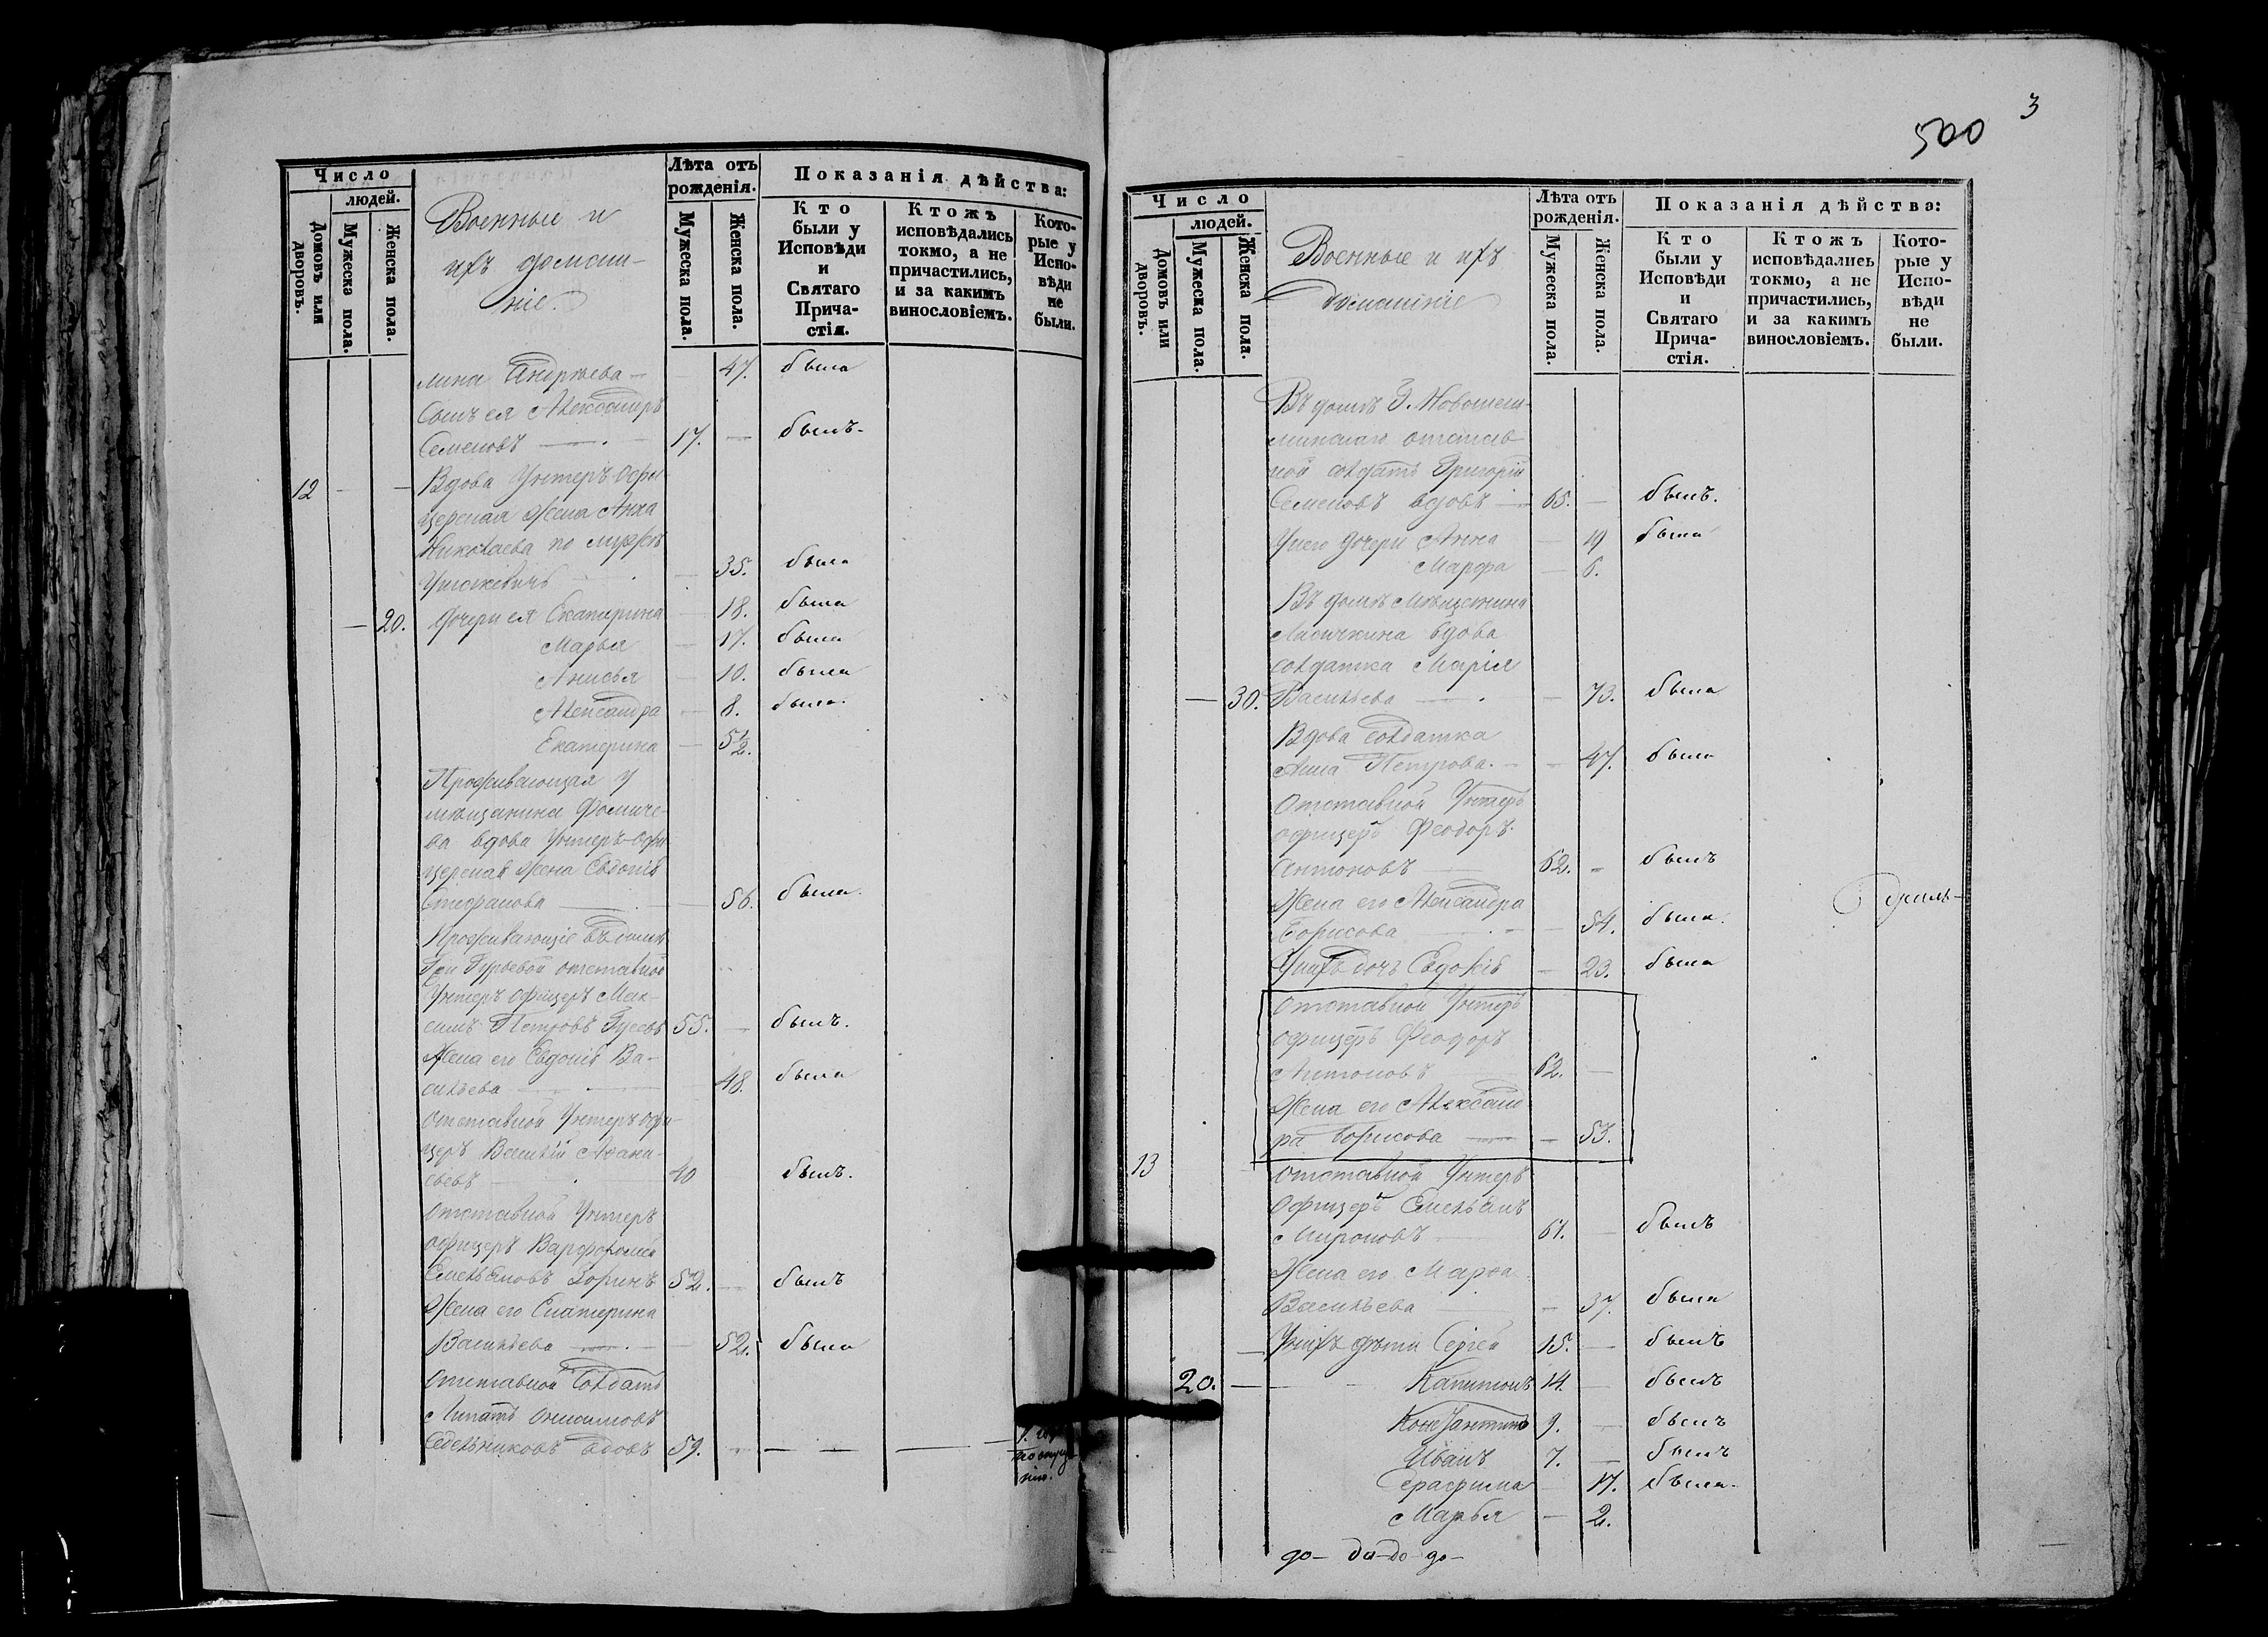 Число
людей.
Домовъ или дворовъ.
Мужеска пола.
Женска пола.
Военные и
ихъ домаш-
ніе.
Лѣта отъ
рожденія.
Мужеска пола.
Женска пола.
Показанія дѣйства:
Кто
были у
Исповѣди
и
Святаго
Прича-
стія.
Ктожъ
исповѣдались
токмо, а не
причастились,
и за какимъ
винословіемъ.
Кото-
рые у
Испо-
вѣди
не
были.
лина Андреева — 47. была
Сынъ ея Александръ
Семеновъ — 17. — былъ.
12 — — Вдова Унтеръ-офи-
церская жена Анна
Николаева по мужѣ
— 35. была
— 20. Дочери ея Екатерина — 18. была
Марья — 17. была
Анисья — 10. была
Александра — 8. была.
Екатерина — 5½.
Проживающая у
мѣщанина Фомиче-
ва вдова Унтеръ-офи
церская жена Евдокія
Стефанова — 56. была.
Проживающіе въ домѣ
Гурьевой отставной
Унтеръ офицеръ Мак-
симъ Петровъ Гусевъ 55. — былъ.
Жена его Евдокія Ва-
сильева — 48. была
Отставной Унтеръ офи-
церъ Василій Афана-
сьевъ — 40 былъ.
Отставной Унтеръ
офицеръ Варфоломей
Емельяновъ Зоринъ 52. — былъ
Жена его Екатерина
Васильева — 52. была
Отставной Солдатъ
Ипатъ
Седельниковъ вдовъ 59. — — — — —
по опуще-
нію.
3
500
Число
людей.
Домовъ или дворовъ.
Мужеска пола.
Женска пола.
Военные и ихъ
домашніе
Лѣта отъ
рожденія.
Мужеска пола.
Женска пола.
Показанія дѣйства:
Кто
были у
Исповѣди
и
Святаго
Прича-
стія.
Ктожъ
исповѣдались
токмо, а не
причастились,
и за какимъ
винословіемъ.
Кото-
рые у
Испо-
вѣди
не
были.
Въ домѣ
отстав-
ной солдатъ Григорій
Семеновъ вдовъ — 65. — былъ.
У него дочери Анна — 19 была
Марфа — 6.
Въ домѣ Мѣщанина
вдова
солдатка Марія
— 30. Васильева — 73. была
Вдова Солдатка
Анна Петрова. — 47. была
Отставной Унтеръ
офицеръ Феодоръ
Антоновъ 62. — былъ
Жена его Александра
Борисова — 54. была.
У нихъ дочь Евдокія — 23. была
Отставной Унтеръ
офицеръ Феодоръ
Антоновъ 62. —
Жена его Александ
ра Борисова — 53.
13 Отставной Унтеръ
Офицеръ Емельянъ
Мироновъ 61. — былъ
Жена его Марѳа
Васильева — 37. была
У нихъ дѣти Сергей 15. — былъ
20. — Капитонъ 14. — былъ
Константинъ 9. — былъ
Иванъ 7. — былъ
Серафима — 17. была.
Марья — 2.